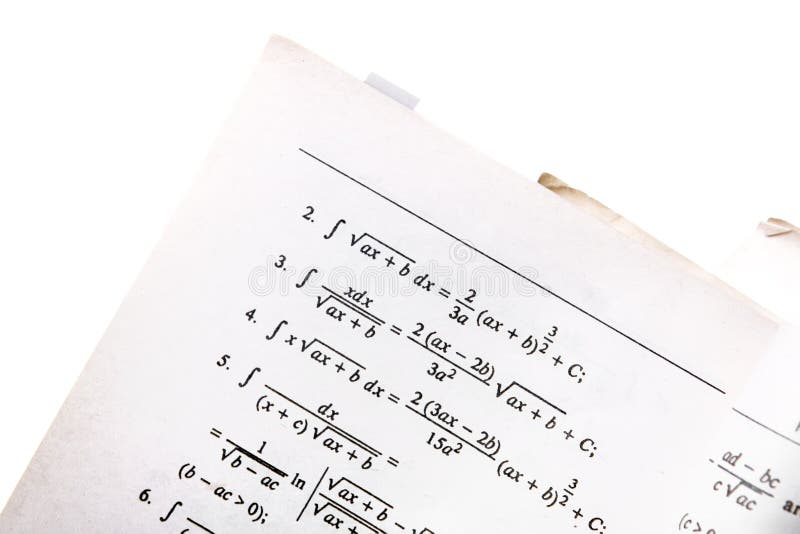 2. ∫ √(ax + b) dx = 2/3a (ax + b)^(3/2) + C;
3. ∫ xdx/√(ax + b) = 2 (ax − 2b)/3a² √(ax + b) + C;
4. ∫ x√(ax + b) dx = 2 (3ax − 2b)/15a² (ax + b)^(3/2) + C:
5. ∫ dx/((x + c) √(ax + b)) =
= 1/√(b − ac) ln | √(ax + b) − √
√(ax +
(b − ac > 0);
6. ∫
ad − bc
c√ac
(c >
dreamstime